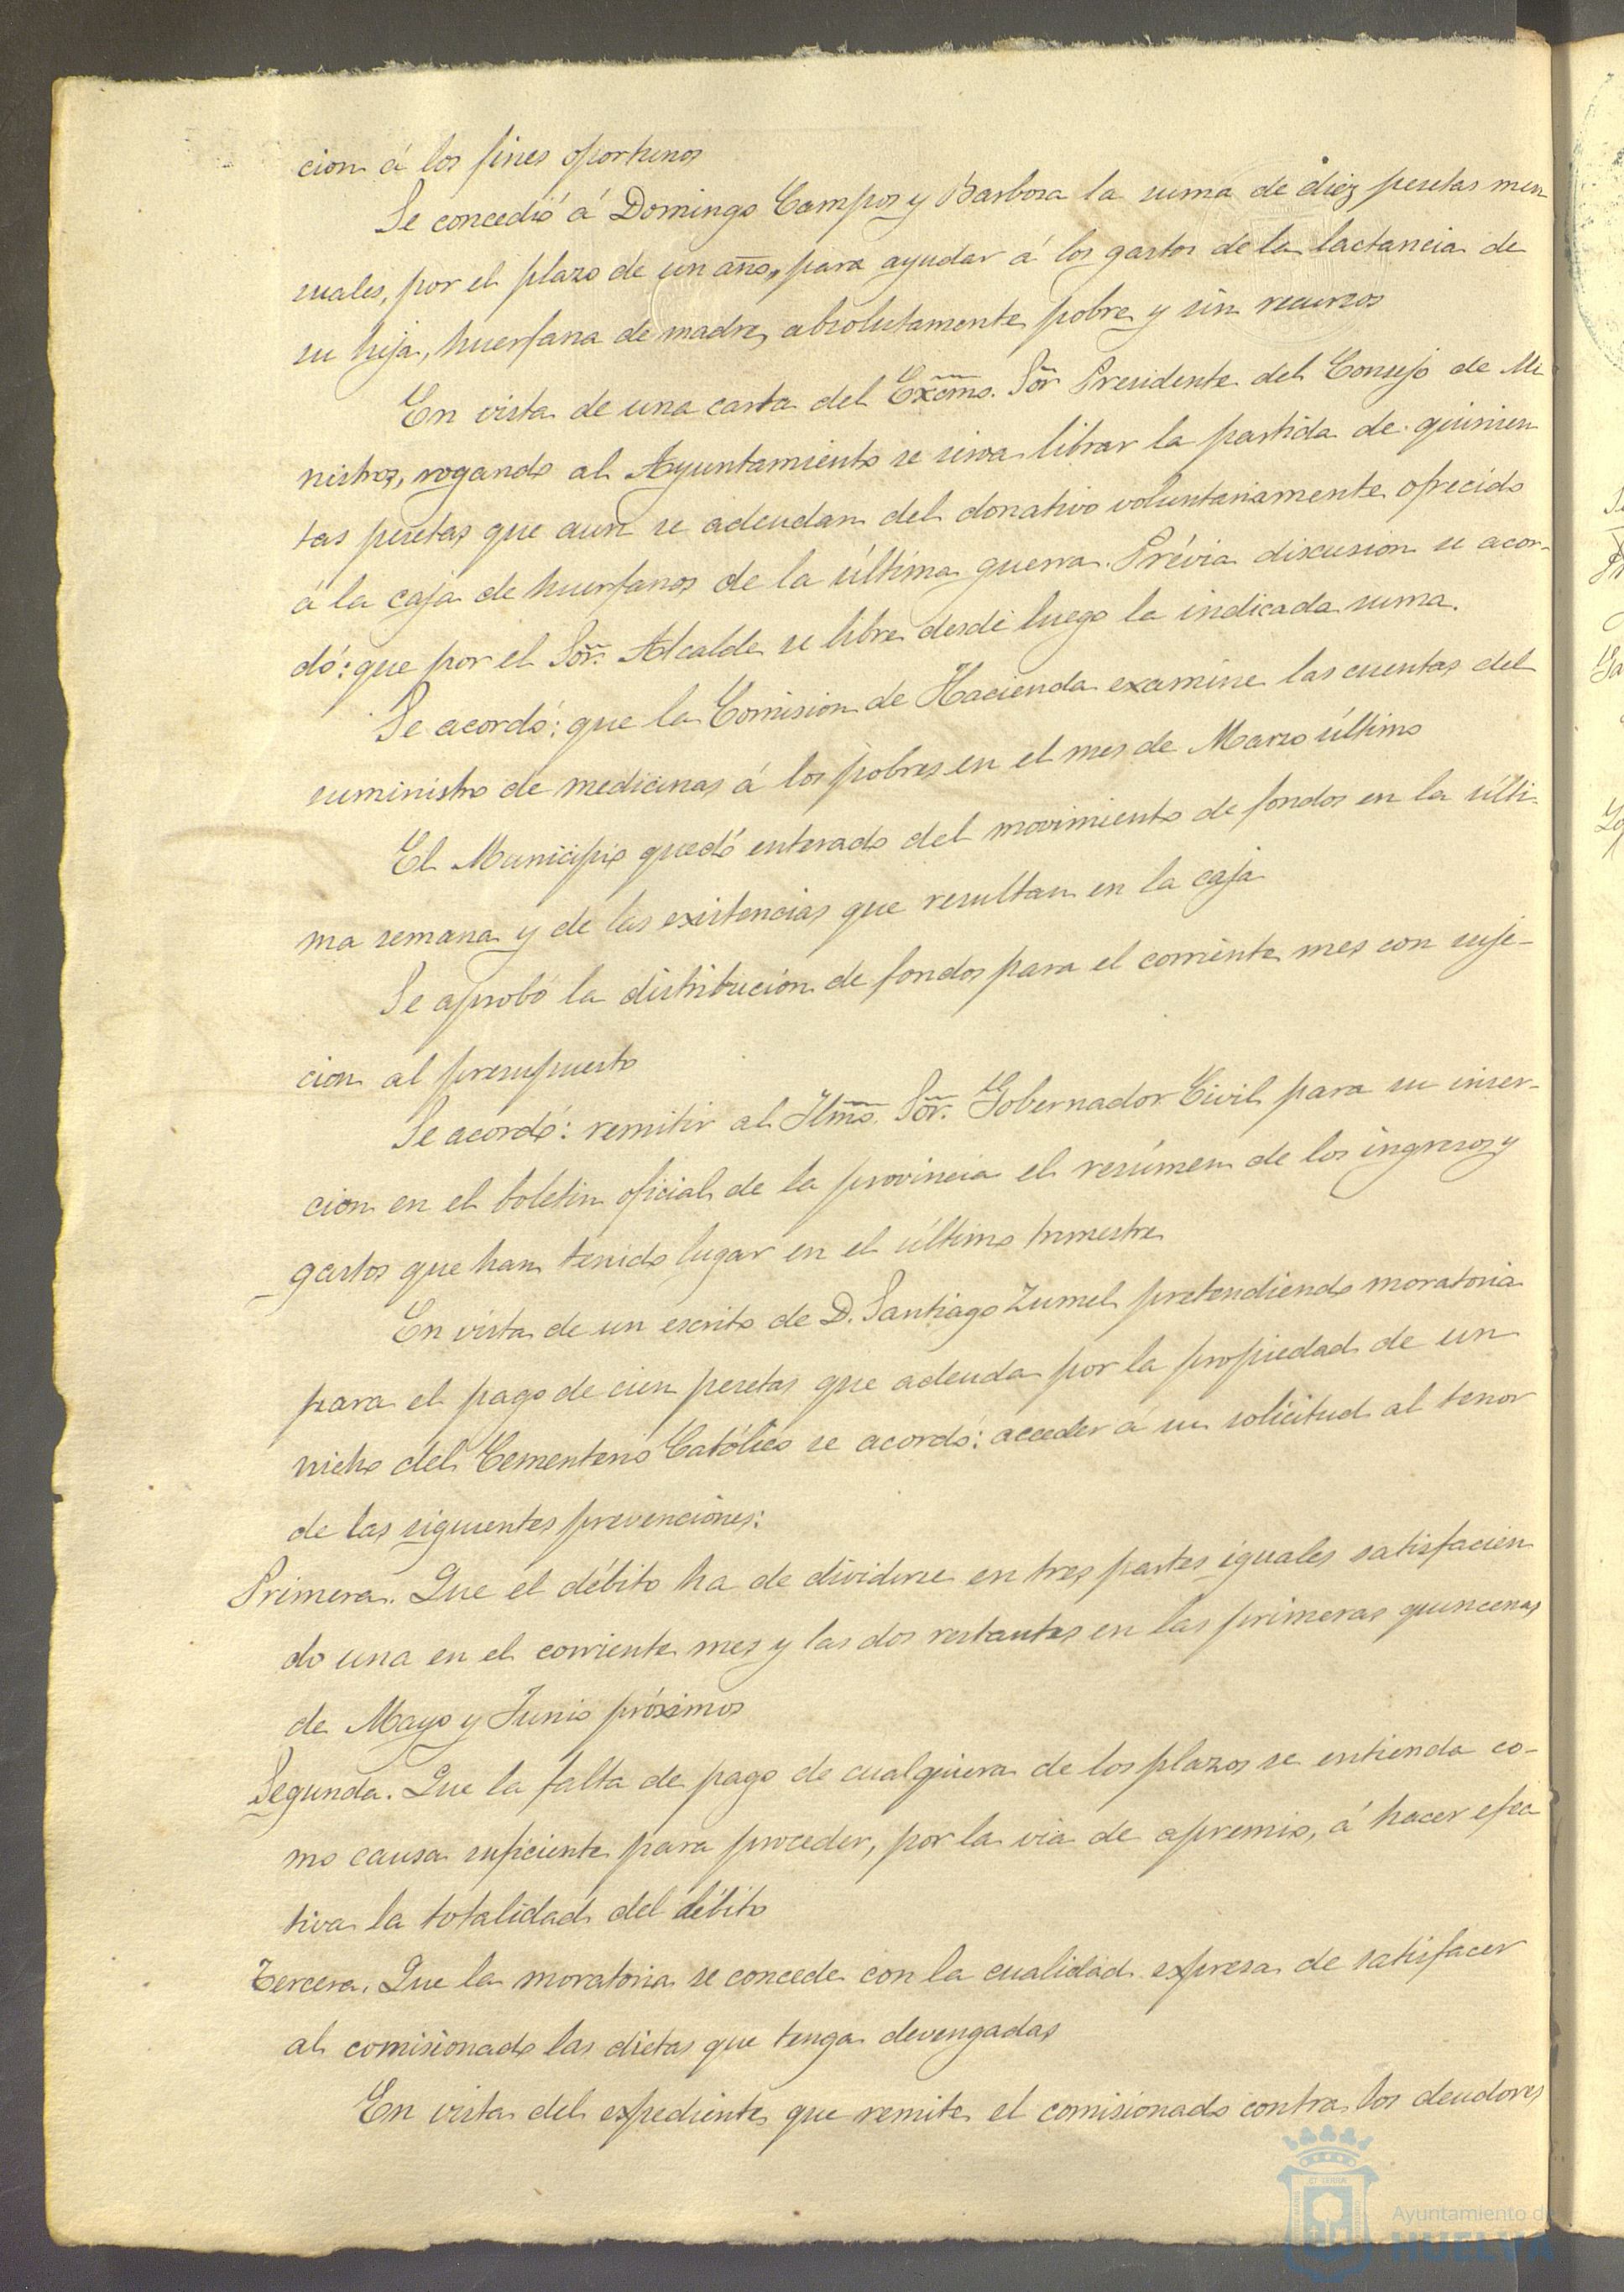 cion á los fines oportunos
Se concedió á Domingo Campos y Barbosa la suma de diez pesetas men
suales, por el plazo de un año, para ayudar á los gastos de la lactancia de
su hija, huerfana de madre, absolutamente pobre y sin recursos
En vista de una carta del Excmo. Sor Presidente del Consejo de Mi
nistros, rogando al Ayuntamiento se sirva librar la partida de quinien
tas pesetas que aun se adeudan del donativo voluntariamente ofrecido
á la caja de huerfanos de la última guerra. Prévia discusion se acor-
dó: que por el Sor. Alcalde se libre desde luego la indicada suma.
Se acordó: que la Comision de Hacienda examine las cuentas del
suministro de medicinas á los pobres en el mes de Marzo último
El Municipio quedó enterado del movimiento de fondos en la últi-
ma semana y de las existencias que resultan en la caja
Se aprobó la distribución de fondos para el corriente mes con suje-
cion al presupuesto
Se acordó: remitir al Iltmo. Sor. Gobernador Civil para su inser-
cion en el boletin oficial de la provincia el resúmen de los ingresos y
gastos que han tenido lugar en el último trimestre
En vista de un escrito de D. Santiago Zumel pretendiendo moratoria
para el pago de cien pesetas que adeuda por la propiedad de un
nicho del Cementerio Católico se acordó: acceder á su solicitud al tenor
de las siguientes prevenciones:
Primera. Que el débito ha de dividirse en tres partes iguales satisfacien
do una en el corriente mes y las dos restantes en las primeras quincenas
de Mayo y Junio próximos
Segunda. Que la falta de pago de cualquiera de los plazos se entienda co-
mo causa suficiente para proceder, por la via de apremio, á hacer efec
tiva la totalidad del débito
Tercera. Que la moratoria se concede con la cualidad expresa de satisfacer
al comisionado las dietas que tenga devengadas
En vista del expediente que remite el comisionado contra los deudores
Ayuntamiento de
HUELVA